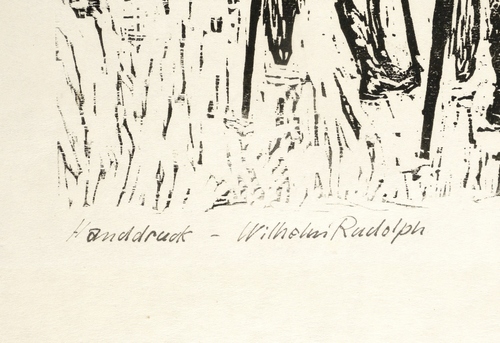 Handdruck – Wilhelm Rudolph